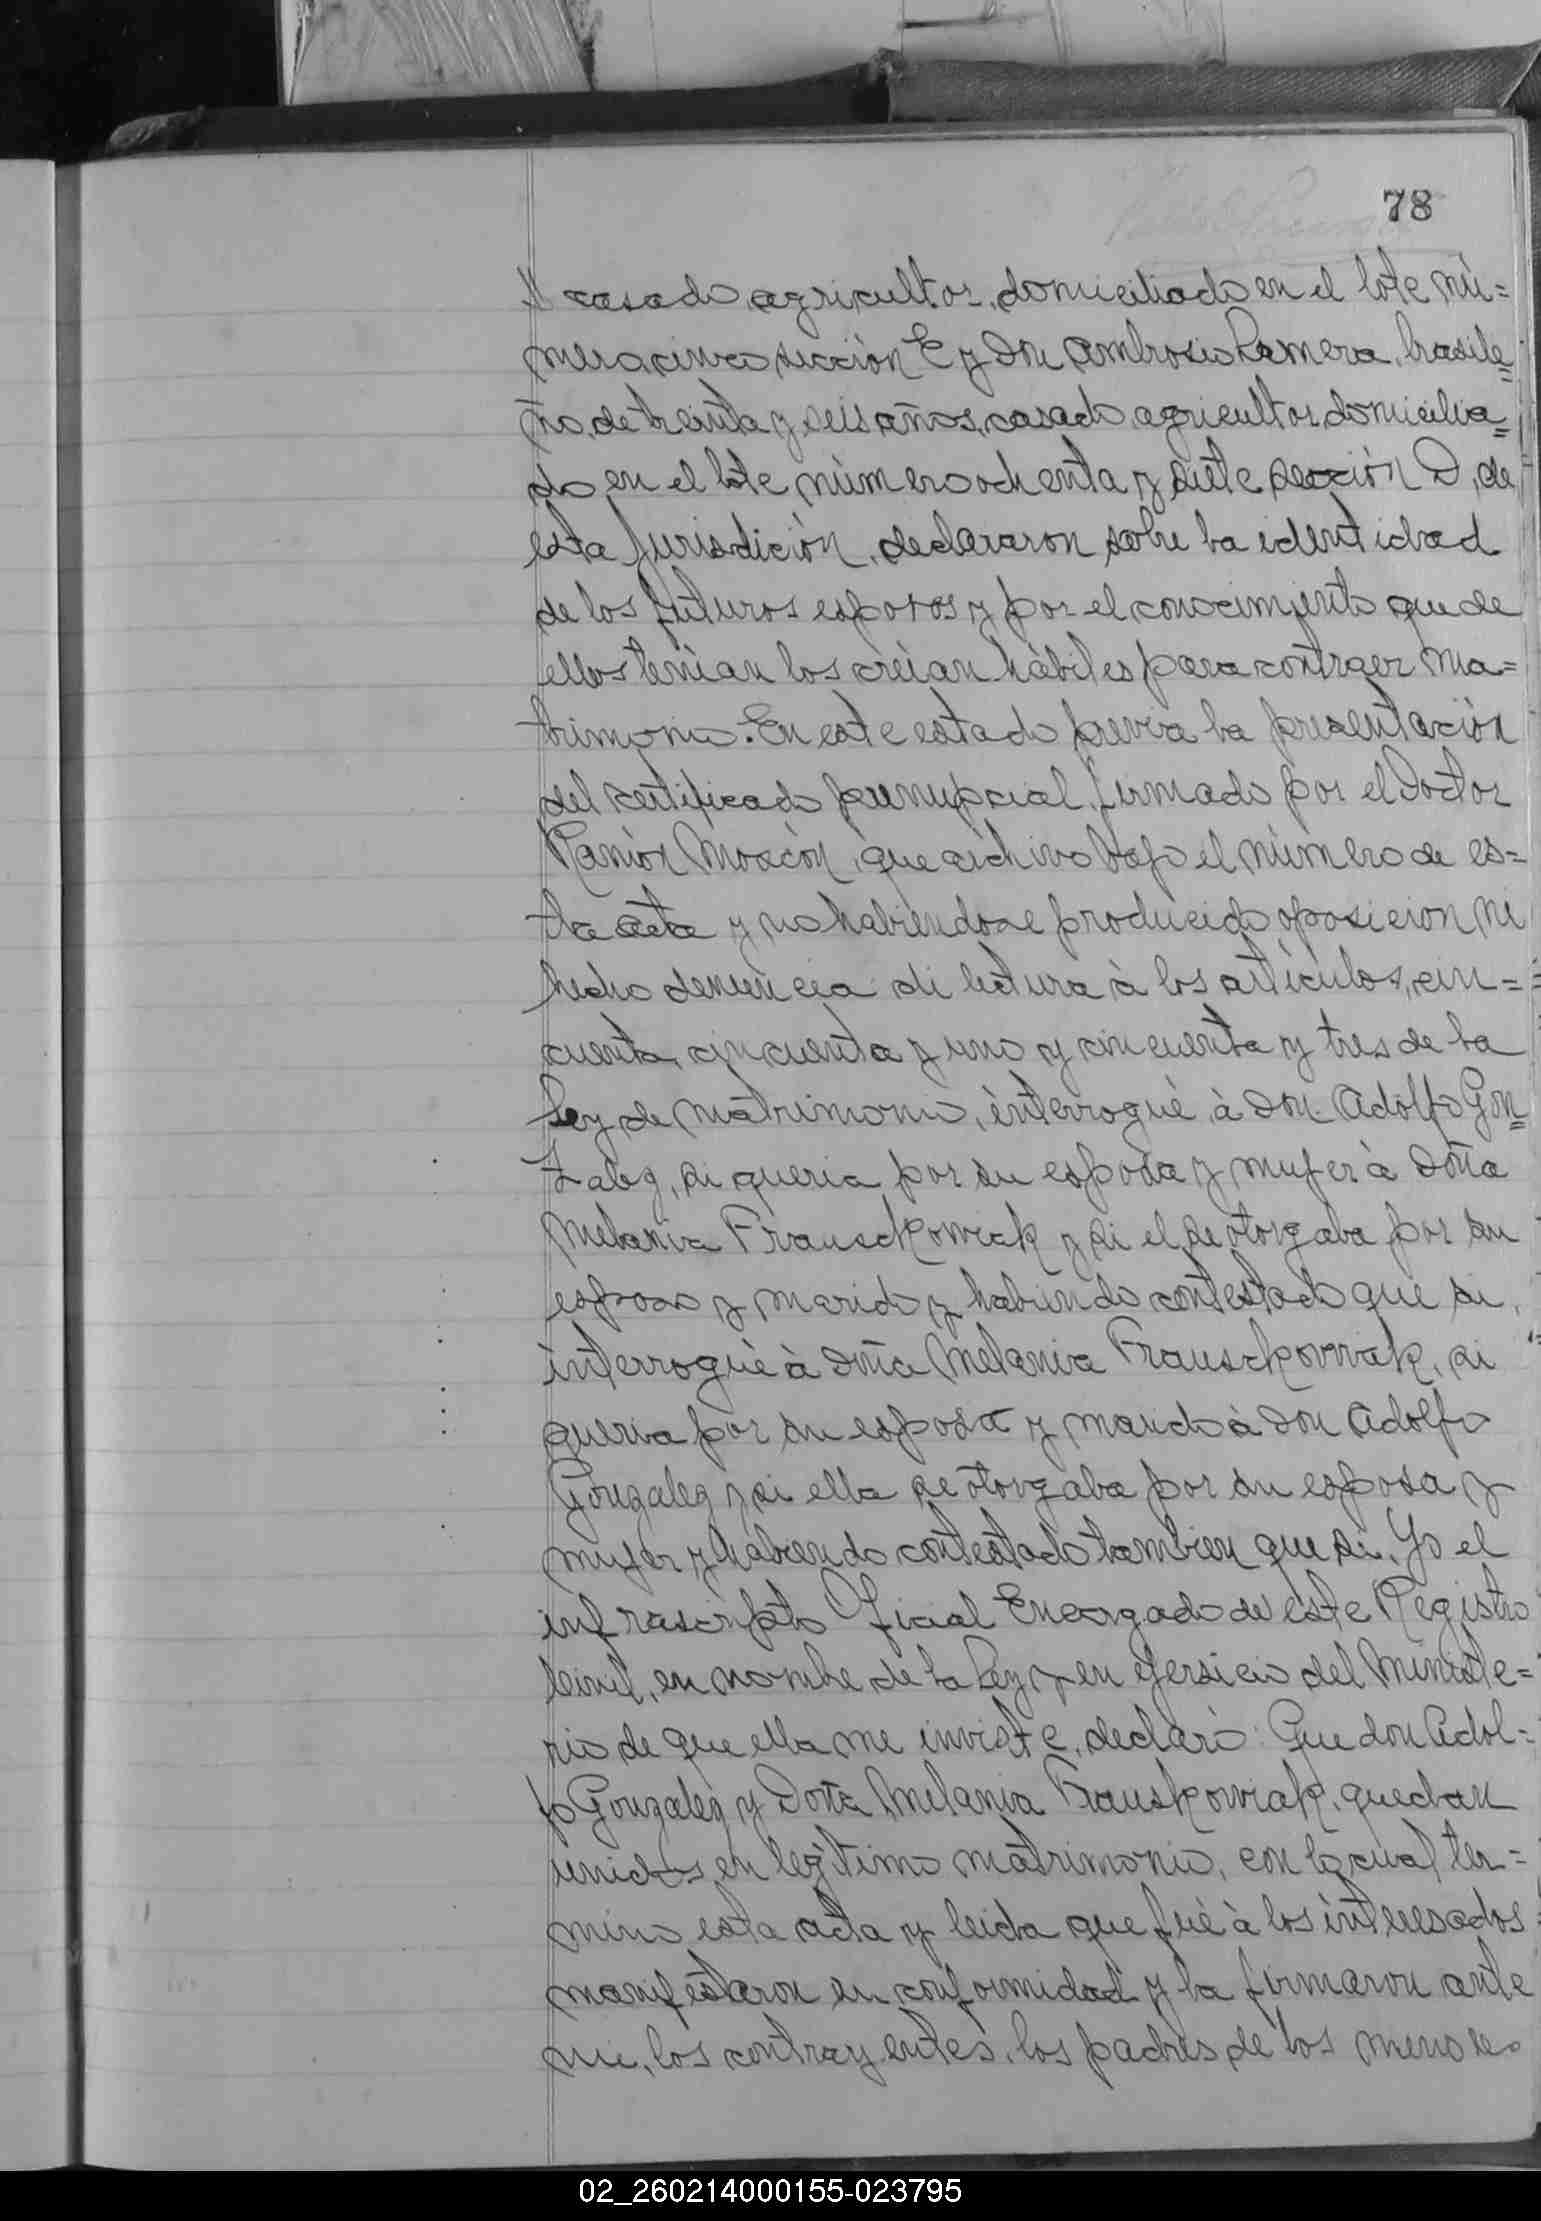 78
casado, agricultor, domiciliado en el lote nú=
mero cinco sección E y Don Ambrosio Ramera, brasile=
ño, de treinta y seis años, casado, agricultor, domicilia=
do en el lote número ochenta y siete sección D, de
esta Jurisdición, declararon sobre la identidad
de los futuros esposos y por el conocimiento que de
ellos tenian los creian hábiles para contraer ma=
trimonio. En este estado previa la presentación
del certificado prenupcial, firmado por el Doctor
Ramón que archivo bajo el número de es=
ta acta y no habiendose producido oposicion ni
hecho denuncia di lectura à los artículos, cin=
cuenta, cincuenta y uno y cincuenta y tres de la
Ley de Matrimonio, interrogué à Don Adolfo Gon=
zalez, si queria por su esposa y mujer à Doña
Melania Frausckowiak y si el se otorgaba por su
esposo y marido y habiendo contestado que si,
interrogué à Doña Melania Frausckowiak, si
queria por su esposo y marido à Don Adolfo
Gonzalez y si ella se otorgaba por su esposa y
mujer y habiendo contestado tambien que si. Yo el
infrascripto Oficial Encargado de este Registro
Civil, en nombre de la Ley y en ejersicio del Ministe=
rio de que ella me inviste, declaro: Que don Adol=
fo Gonzalez y Doña Melania Frauskowiak, quedan
unidos en legítimo matrimonio, con lo cual ter=
mino esta acta y leida que fué à los interesados
manifestaron su conformidad y la firmaron ante
mi, los contrayentes, los padres de los menores
02_260214000155-023795